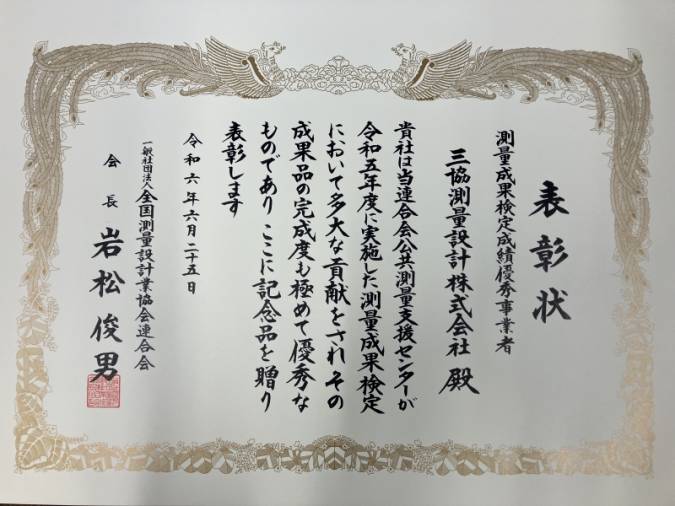 表彰状
測量成果検定成績優秀事業者
三協測量設計株式会社 殿
貴社は当連合会公共測量支援センターが
令和五年度に実施した測量成果検定
において多大な貢献をされ その
成果品の完成度も極めて優秀な
ものであり ここに記念品を贈り
表彰します
令和六年六月二十五日
一般社団法人全国測量設計業協会連合会
会長 岩松俊男